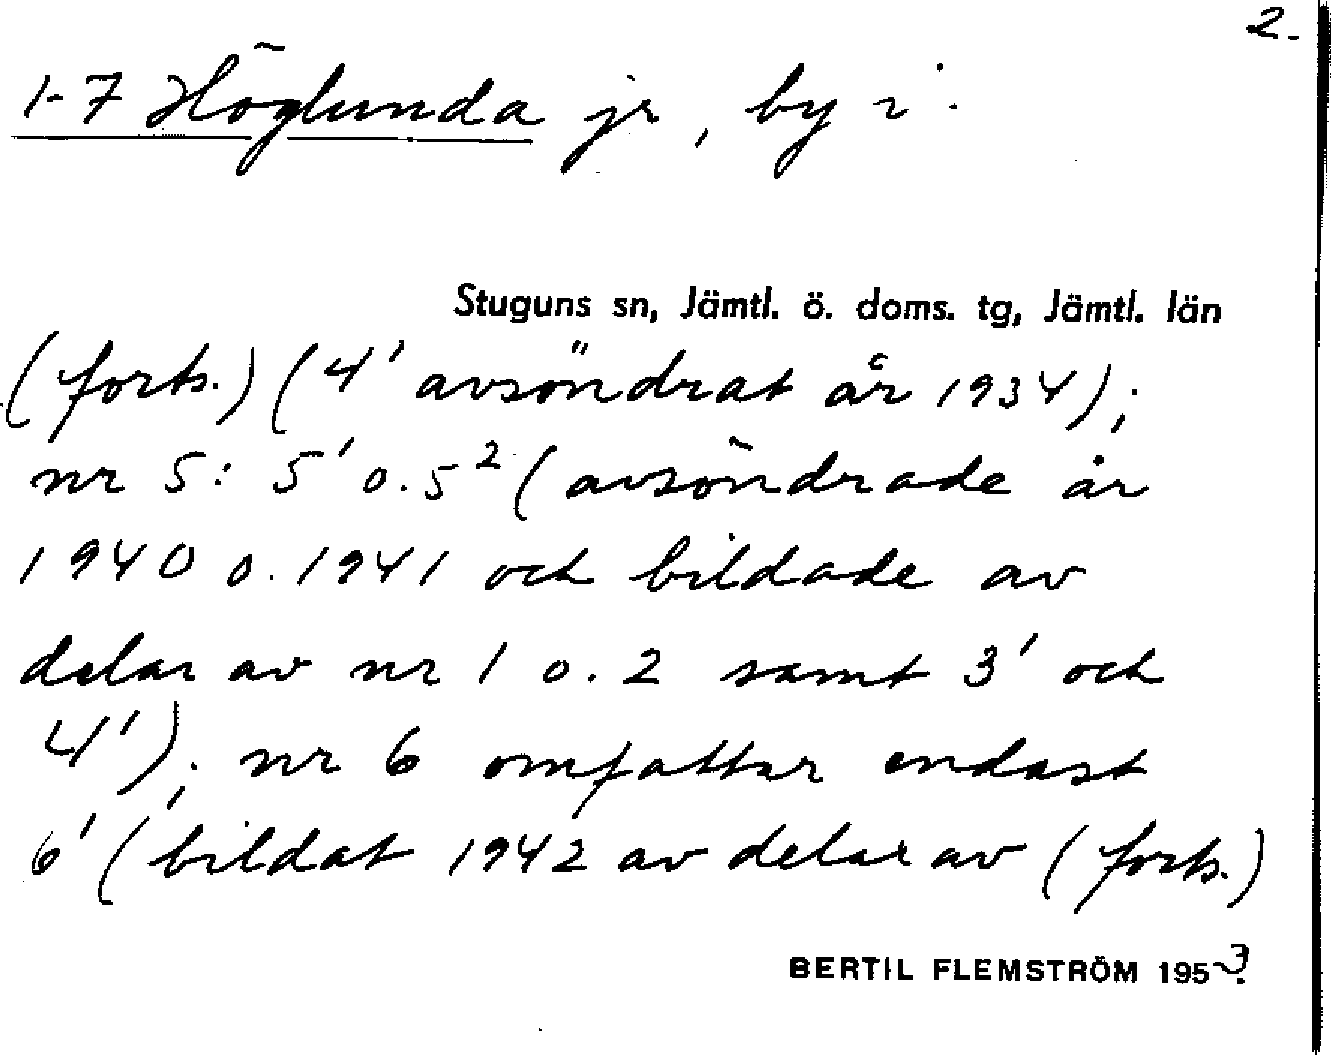 2.
1-7 Höglunda jr, by i.
Stuguns sn, Jämtl. ö. doms. tg, Jämtl. län
(forts.) (4¹ avsöndrat år 1934);
nr 5: 5¹ o. 5² (avsöndrade år
1940 o. 1941 och bildade av
delar av nr 1 o. 2 samt 3¹ och
4¹); nr 6 omfattar endast
6¹ (bildat 1942 av delar av (forts.)
BERTIL FLEMSTRÖM 1953.